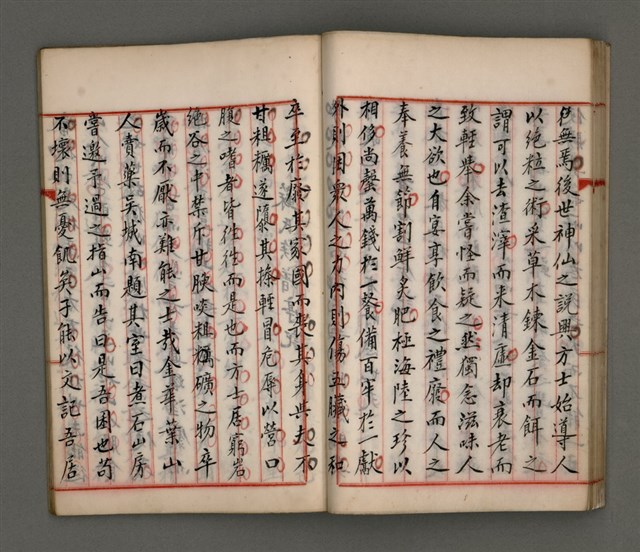 無焉後世神仙之說興方士始導人
以絕粒之術采草木鍊金石而餌之
謂可以去渣滓而来清虛却衰老而
致輕舉余嘗怪而疑之然獨念滋味人
之大欲也自宴享飲食之禮廢而人之
奉養無節割鮮炙肥極海陸之珍以
相侈尚罄萬錢於一餐備百牢於一獻
外則困衆人之力内則傷五臟之和
卒至於廢其家國而喪其身與夫不
甘粗糲遂隳其操輕冒危辱以營口
腹之嗜者皆徃徃而是也而方士居窮岩
絕谷之中禁斥甘腴啖粗糲礦之物卒
歲而不厭亦難能之士哉金華葉山
人賣藥吴城南題其室曰煮石山房
嘗邀予過之指山而告曰是吾囷也苟
不壞則無憂飢矣子能以文記吾居